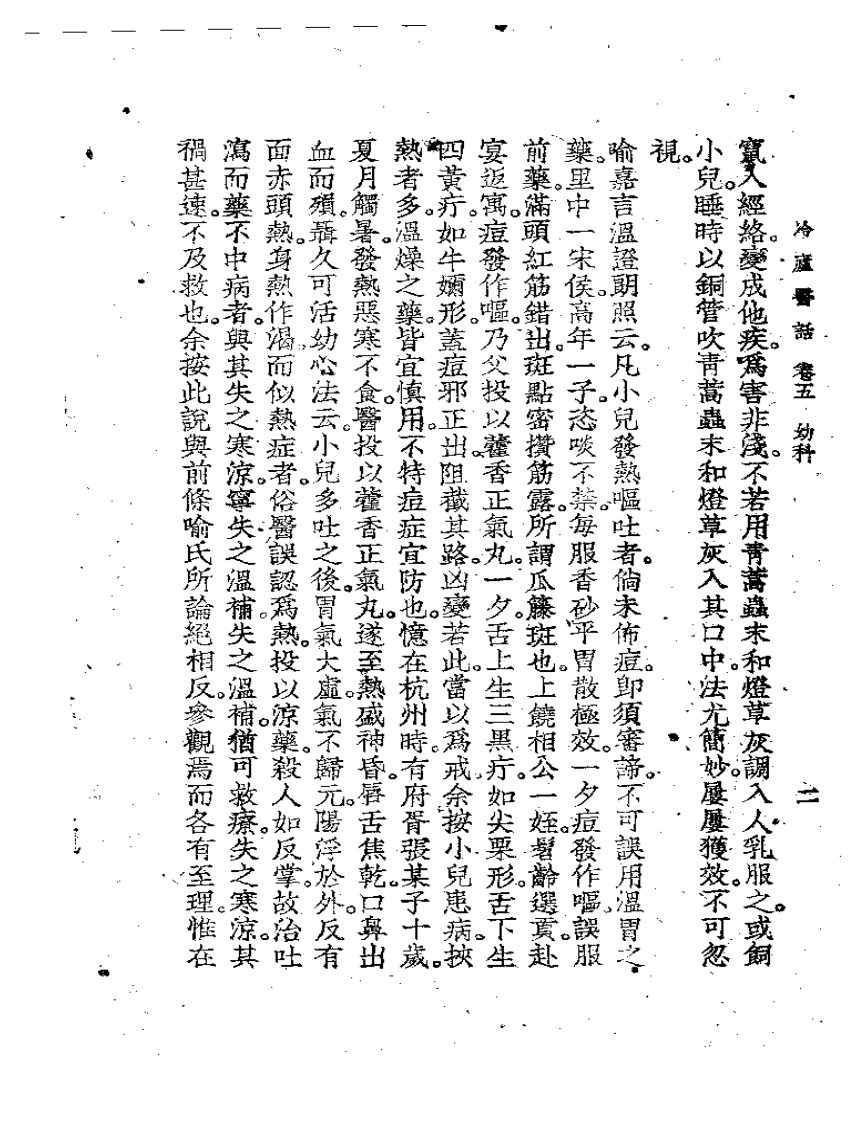 冷廬醫話 卷五 幼科 二
竄入經絡。變成他疾。爲害非淺。不若用青蒿蟲末和燈草灰調入人乳服之。或飼
小兒。睡時以銅管吹青蒿蟲末和燈草灰入其口中。法尤簡妙。屢屢獲效。不可忽
視。
喻嘉言溫證朗照云。凡小兒發熱嘔吐者。倘未佈痘。卽須審諦。不可誤用溫胃之
藥。里中一宋侯。高年一子。恣啖不禁。每服香砂平胃散極效。一夕痘發作嘔。誤服
前藥。滿頭紅筋錯出。斑點密攢筋露。所謂瓜籐斑也。上饒相公一姪。髫齡選貢。赴
宴返寓。痘發作嘔。乃父投以藿香正氣丸。一夕舌上生三黑疔。如尖栗形。舌下生
四黃疔。如牛嬭形。蓋痘邪正出。阻截其路。凶變若此。當以爲戒。余按小兒患病。挾
熱者多。溫燥之藥。皆宜愼用。不特痘症宜防也。憶在杭州時。有府胥張某子十歲。
夏月觸暑。發熱惡寒不食。醫投以藿香正氣丸。遂至熱盛神昏。唇舌焦乾。口鼻出
血而殞。聶久可活幼心法云。小兒多吐之後。胃氣大虛。氣不歸元。陽浮於外。反有
面赤頭熱。身熱作渴。而似熱症者。俗醫誤認爲熱。投以涼藥。殺人如反掌。故治吐
瀉而藥不中病者。與其失之寒涼。寧失之溫補。失之溫補。猶可救療。失之寒涼。其
禍甚速。不及救也。余按此說與前條喻氏所論絕相反。參觀焉而各有至理。惟在